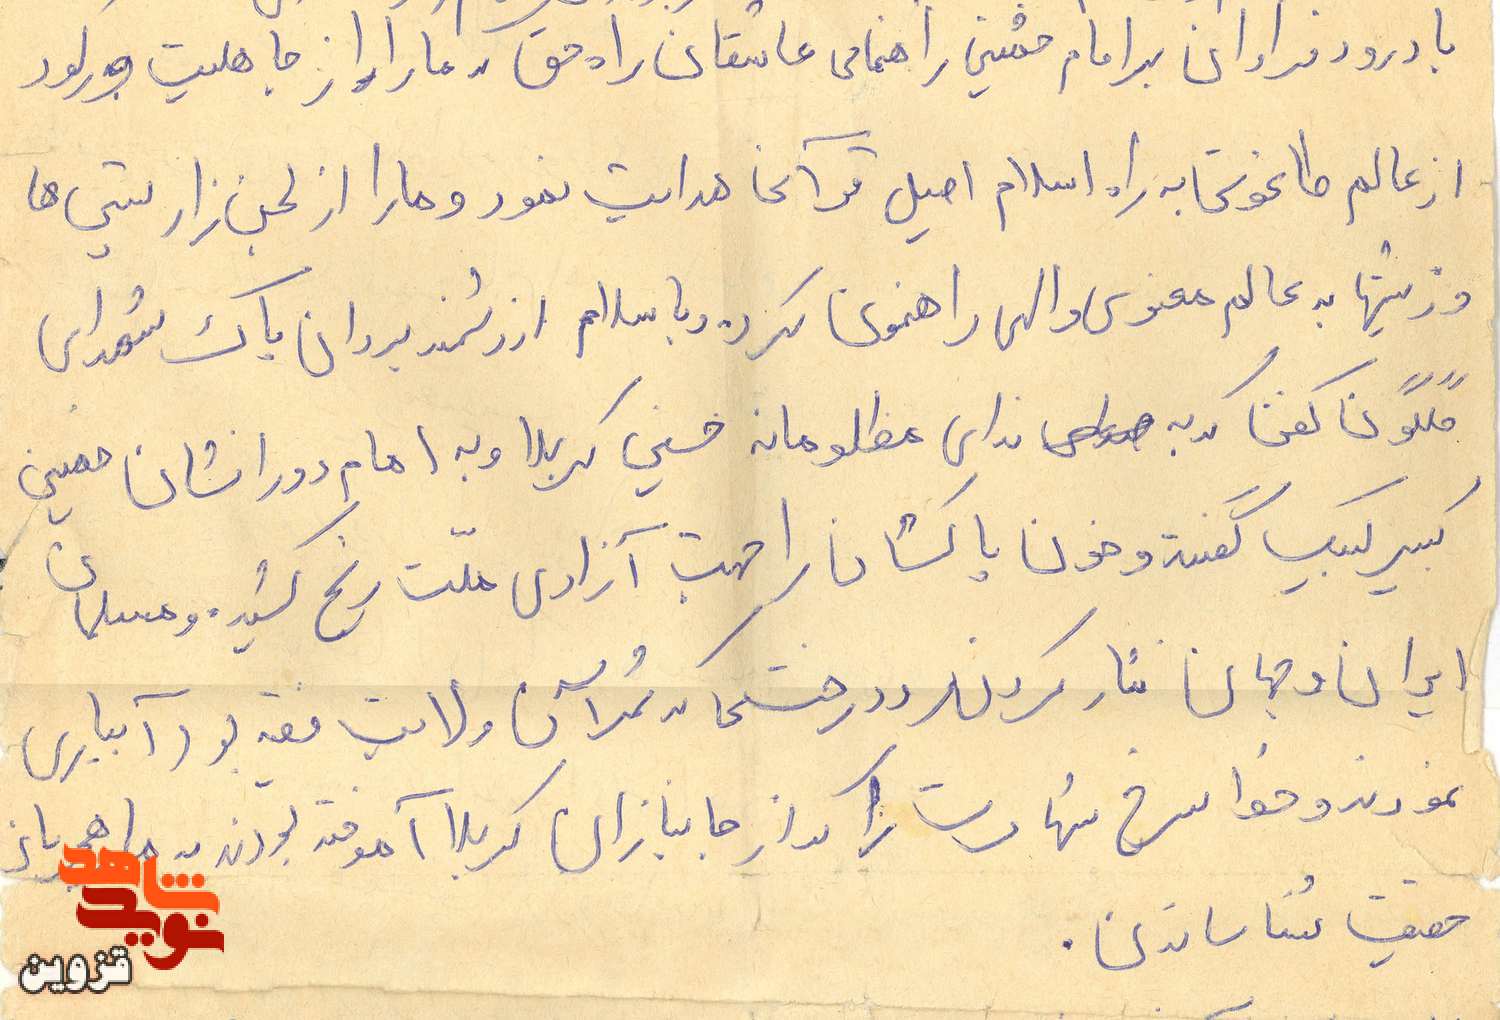 با درود فراوان بر امام خمینی راهنمای عاشقان راه حق که ما را از جاهلیت و رکود
از عالم طاغوتی به راه اسلام اصیل قرآنی هدایت نمود و ما را از لجن زار پستی ها
و زشتیها به عالم معنوی والهی راهنمون کرده و با سلام ارزشمند بر روان پاک شهدای
گلگون کفن که به ندای مظلومانه حسین کربلا و به امام دورانشان خمینی
کبیر لبیک گفته و خون پاکشان را جهت آزادی ملّت رنج کشیده و مسلمان
ایران و جهان نثار کردند و درختی که ثمرآن ولایت فقیه بود آبیاری
نمودند و خون سرخ شهادت را که از جانبازان کربلا آموخته بودند به ما
حقیقت شناساندن.
شاهد
نوید
قزوین